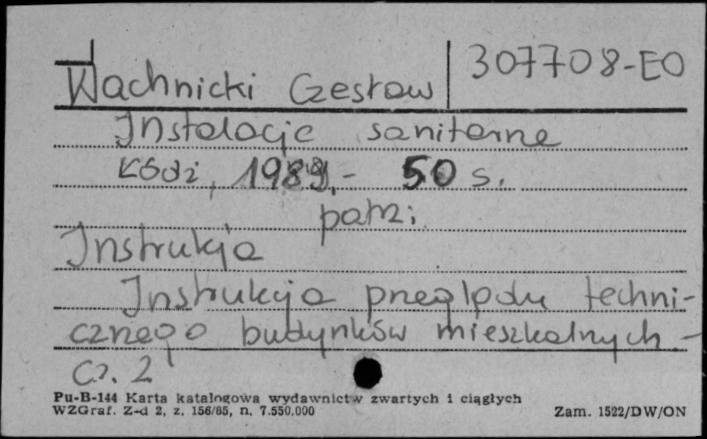 Wachnicki Czesław 307708-EO
Instalacje sanitarne
Łódź, 1989.- 50 s.
patrz:
Instrukcja
Instrukcja przeglądu techni-
cznego budynków mieszkalnych.-
Cz. 2
Pu-B-144 Karta katalogowa wydawnictw zwartych i ciągłych
WZGraf. Z-d 2, z. 156/85, n. 7.550.000 Zam. 1522/DW/ON